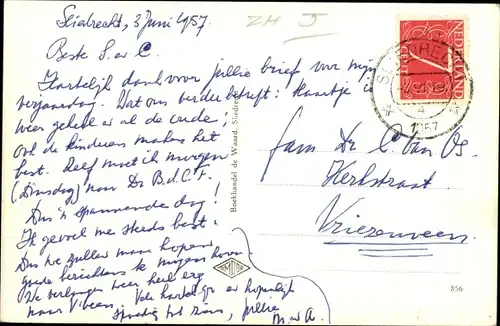 Sliedrecht, 3 Juni 1957
Beste S. en C.
Hartelijk dank voor jullie brief voor mijn
verjaardag. Dat ons verder betreft: Haantje is
weer geheel al de oude;
Ook de kinderen maken het
best. Zelf moet ik morgen
(Dinsdag) naar Dr B.d.C.F.
Dus 'n spannende dag!
Ik gevoel me steeds best.
Dus we zullen maar hopen
goede berichten te mogen horen.
We verlangen weer heel erg
naar V'veen. Vele hartel. gr. en hopenlijk
spoedig tot ziens, jullie
M. en A.
ZH
NEDERLAND
SLIEDRECHT
4
1957
Fam Dr C. van Os.
Kerkstraat
Vriezenveen
Boekhandel de Waard, Sliedrecht
856